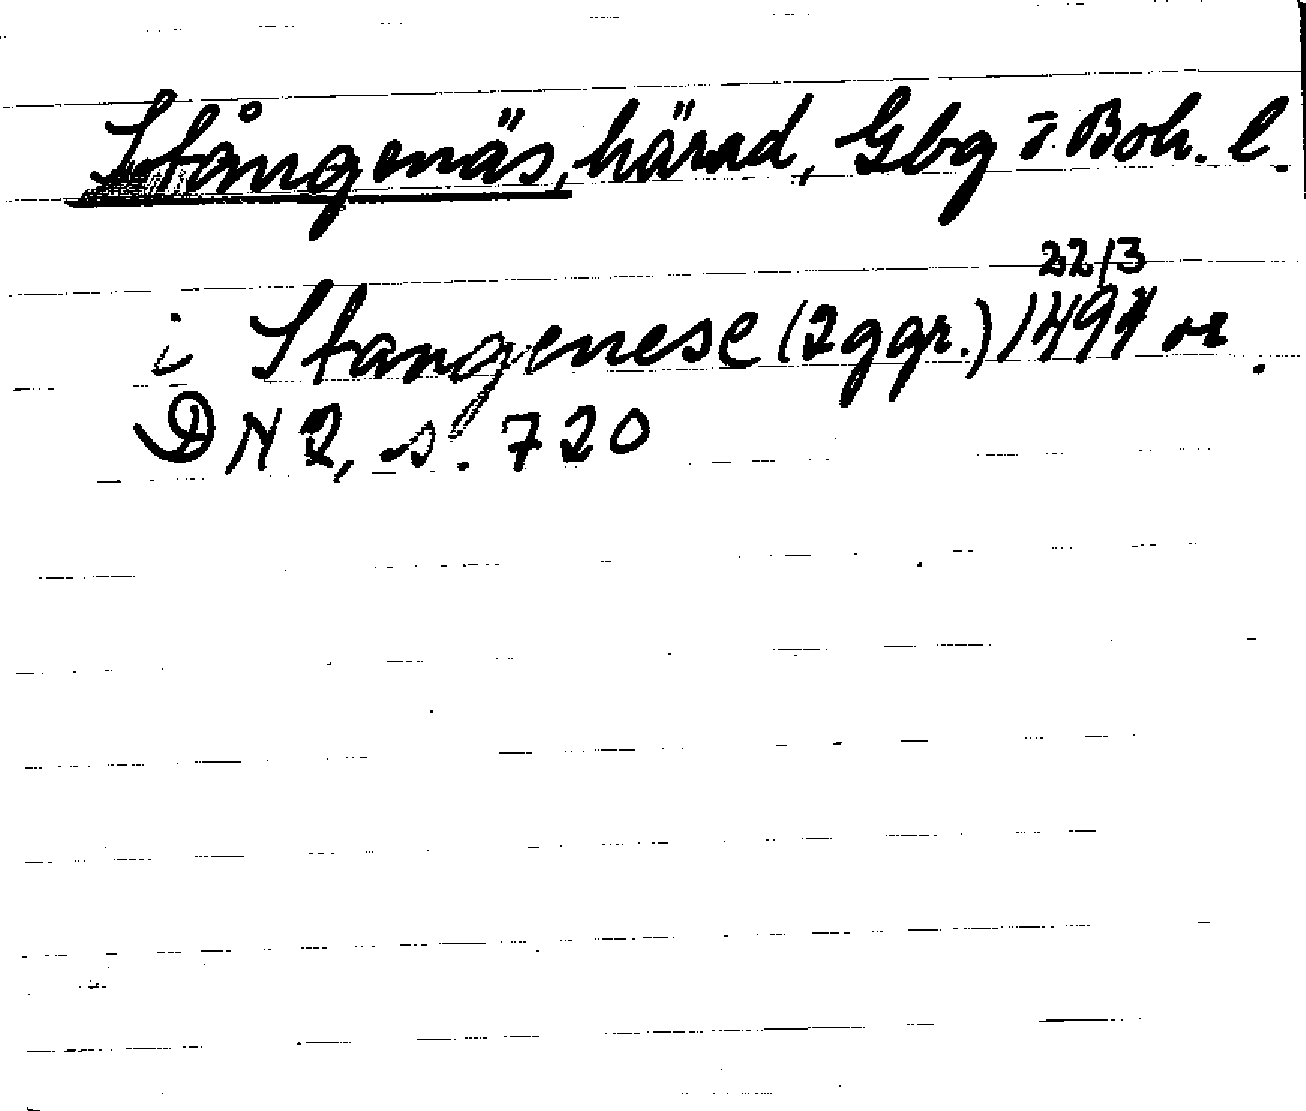 Stångenäs, härad, Gbg o. Boh. l.
22/3
i Stangenese (2 ggr.) 1491 or.
DN 2, s. 720